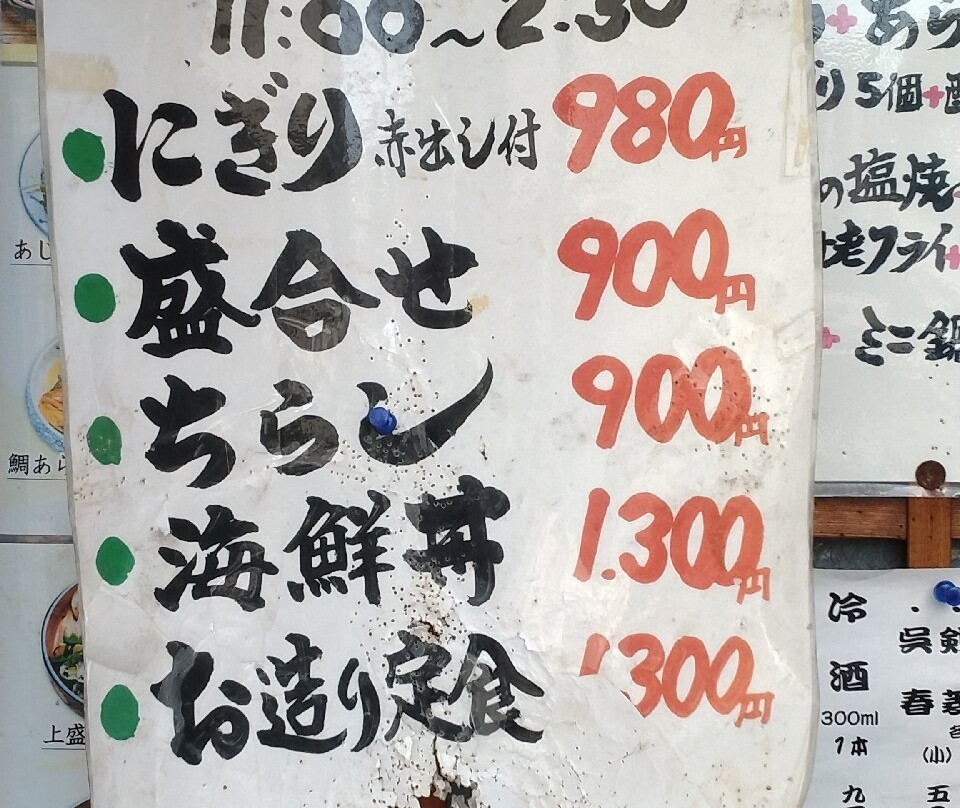 11:00~2:30
にぎり 赤出し付 980円
盛合せ 900円
ちらし 900円
海鮮丼 1.300円
お造り定食 1300円
あじ
鯛あら
上盛
り5個+
の塩焼
老フライ+
ミニ鍋
冷酒
300ml
1本
九
呉剣
春
(小)
五